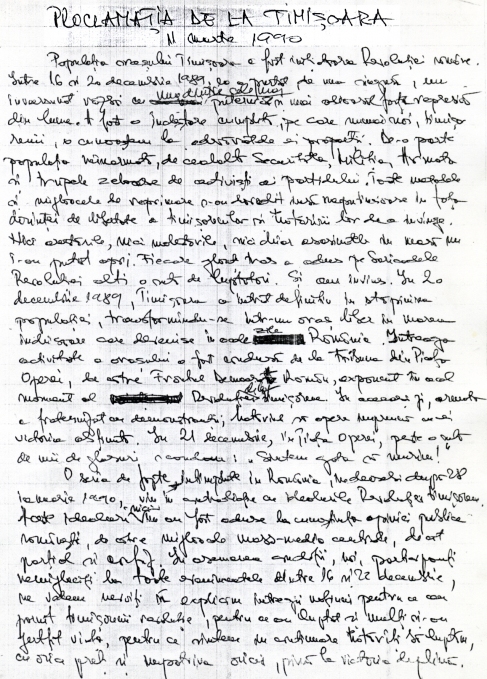 PROCLAMAȚIA DE LA TIMIȘOARA
11 martie 1990
Populația orașului Timișoara a fost inițiatoarea Revoluției române.
Între 16 și 20 decembrie 1989, ea a purtat, de una singură, un
înverșunat război cu unul dintre cele mai puternice și mai odioase sisteme represive
din lume. A fost o încleștare cumplită, pe care numai noi, timișo-
renii, o cunoaștem la adevăratele ei proporții. De-o parte
populația neînarmată, de cealaltă Securitatea, Miliția, Armata
și trupele zeloase de activiști ai partidului. Toate metodele
și mijloacele de reprimare s-au dovedit însă neputincioase în fața
dorinței de libertate a timișorenilor și hotărârii lor de a învinge.
Nici arestările, nici molestările, nici chiar asasinatele în masă nu
i-au putut opri. Fiecare glonț tras a adus pe baricadele
Revoluției alți o sută de luptători. Și am învins. În 20
decembrie 1989, Timișoara a intrat definitiv în stăpânirea
populației, transformându-se într-un oraș liber în marea
închisoare care devenise în acele zile România. Întreaga
activitate a orașului a fost condusă de la tribuna din Piața
Operei, de către Frontul Democratic Român, exponent în acel
moment al Revoluției din Timișoara. În aceeași zi, armata
a fraternizat cu demonstranții, hotărând să apere împreună cu ei
victoria obținută. În 21 decembrie, în Piața Operei, peste o sută
de mii de glasuri scandau: „Suntem gata să murim!"
O serie de fapte întâmplate în România, îndeosebi după 28
ianuarie 1990, vin în contradicție cu idealurile Revoluției timișorene.
Aceste idealuri nici n-au fost aduse la cunoștința opiniei publice
românești, de către mijloacele mass-media centrale, decât
parțial și confuz. În asemenea condiții, noi, participanți
nemijlociți la toate evenimentele dintre 16 și 22 decembrie,
ne vedem nevoiți să explicăm întregii națiuni pentru ce au
pornit timișorenii revoluția, pentru ce au luptat și mulți și-au
jertfit viața, pentru ce suntem în continuare hotărâți să luptăm,
cu orice preț și împotriva oricui, până la victoria deplină.